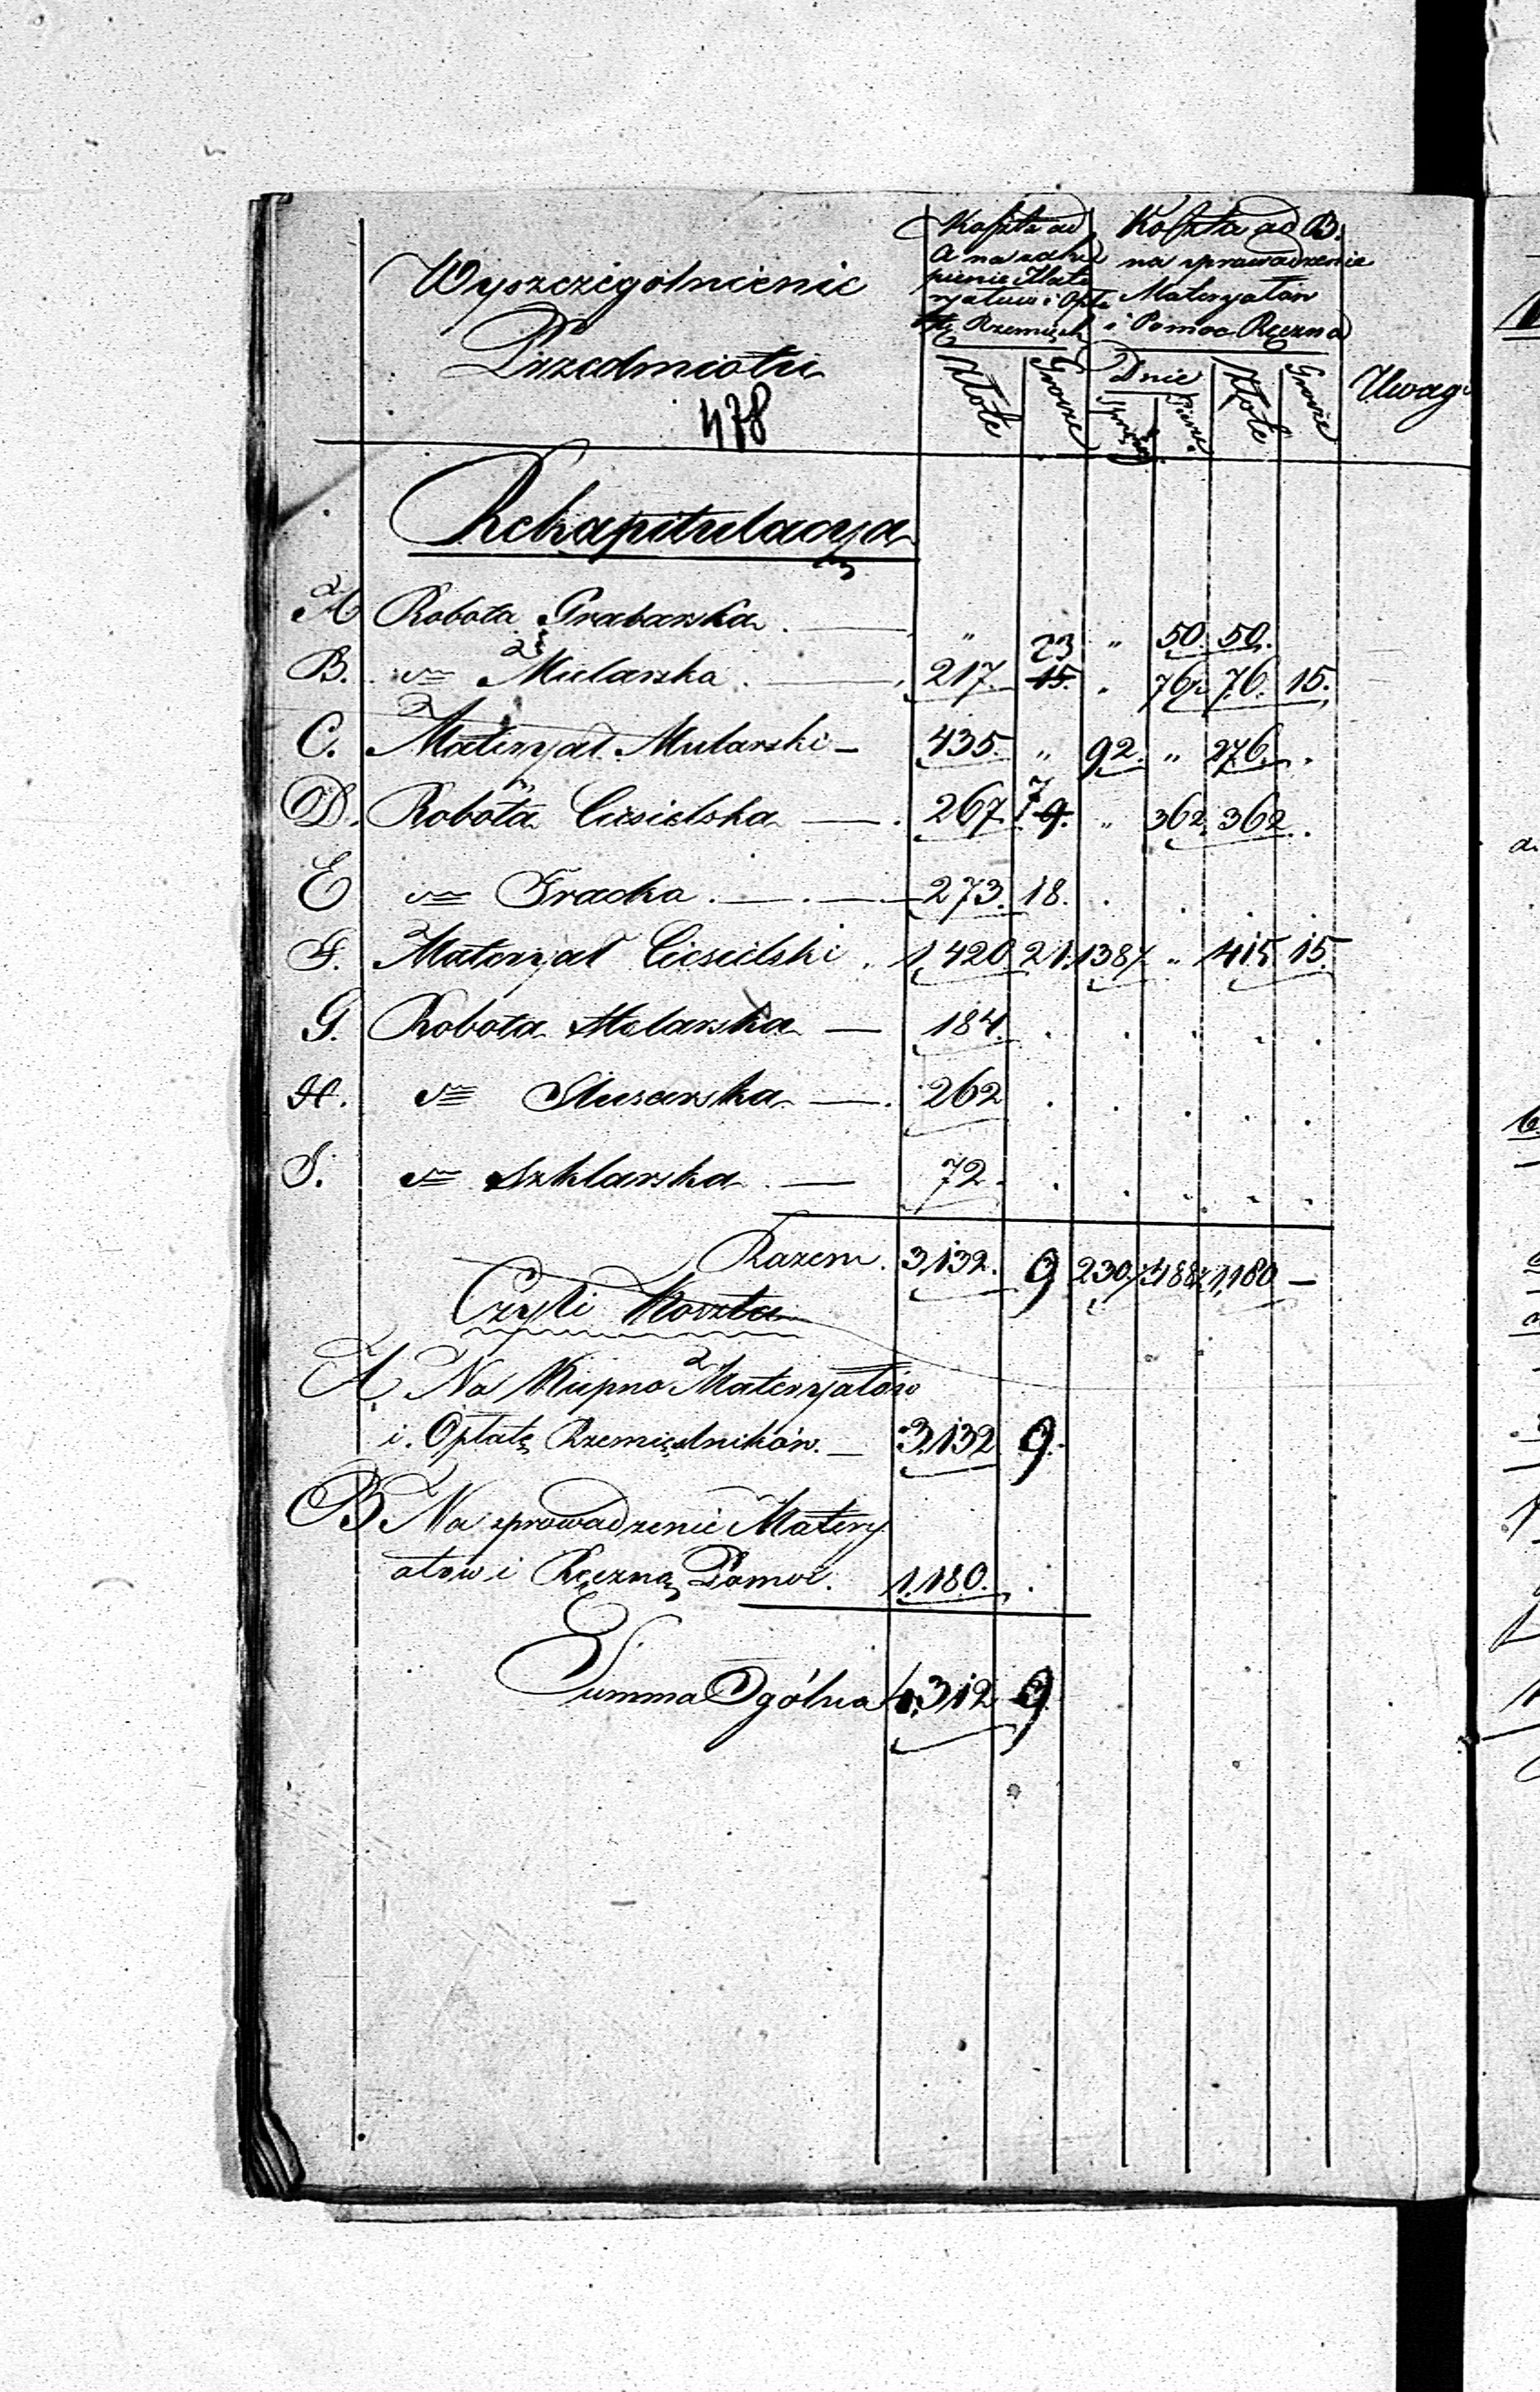 Wyszczegolnienie
Przedmiotu
478
Koszta ad
A na zaku
pienie Mate
ryałuw i Opła
tę Rzemieśl
Koszta ad B.
na sprowadzenie
Materyałów
i Pomoc Ręczna
Złote Grosze Dnie Złote Grosze Uwag
Rekapitulacya
A Robota Grabarska . — " " 50. 50.
B. Mularska . — 217. 23 15. 76½ 76. 15.
C. Materyał Mularski — 435. " 92. " 276. .
D. Robota Ciesielska — . 267. 7 9. " 362. 362 .
E Tracka . — . — 273. 18.
F. Materyał Ciesielski . 1,420 21. 138½ " 415 15.
G. Robota Stolarska — 184.
H. Slusarska — . 262
I. Szklarska . — 72.
Razem. 3,132. 9 230½ 488½ 1,180 —
Czysti Koszta
A. Na Kupno Materyałów
i. Opłatę Rzemieślników. — 3,132 9.
B Na sprowadzenie Matery
ałow i Ręczną Pomoc. 1,180. .
Summa Ogólna 4,312 9